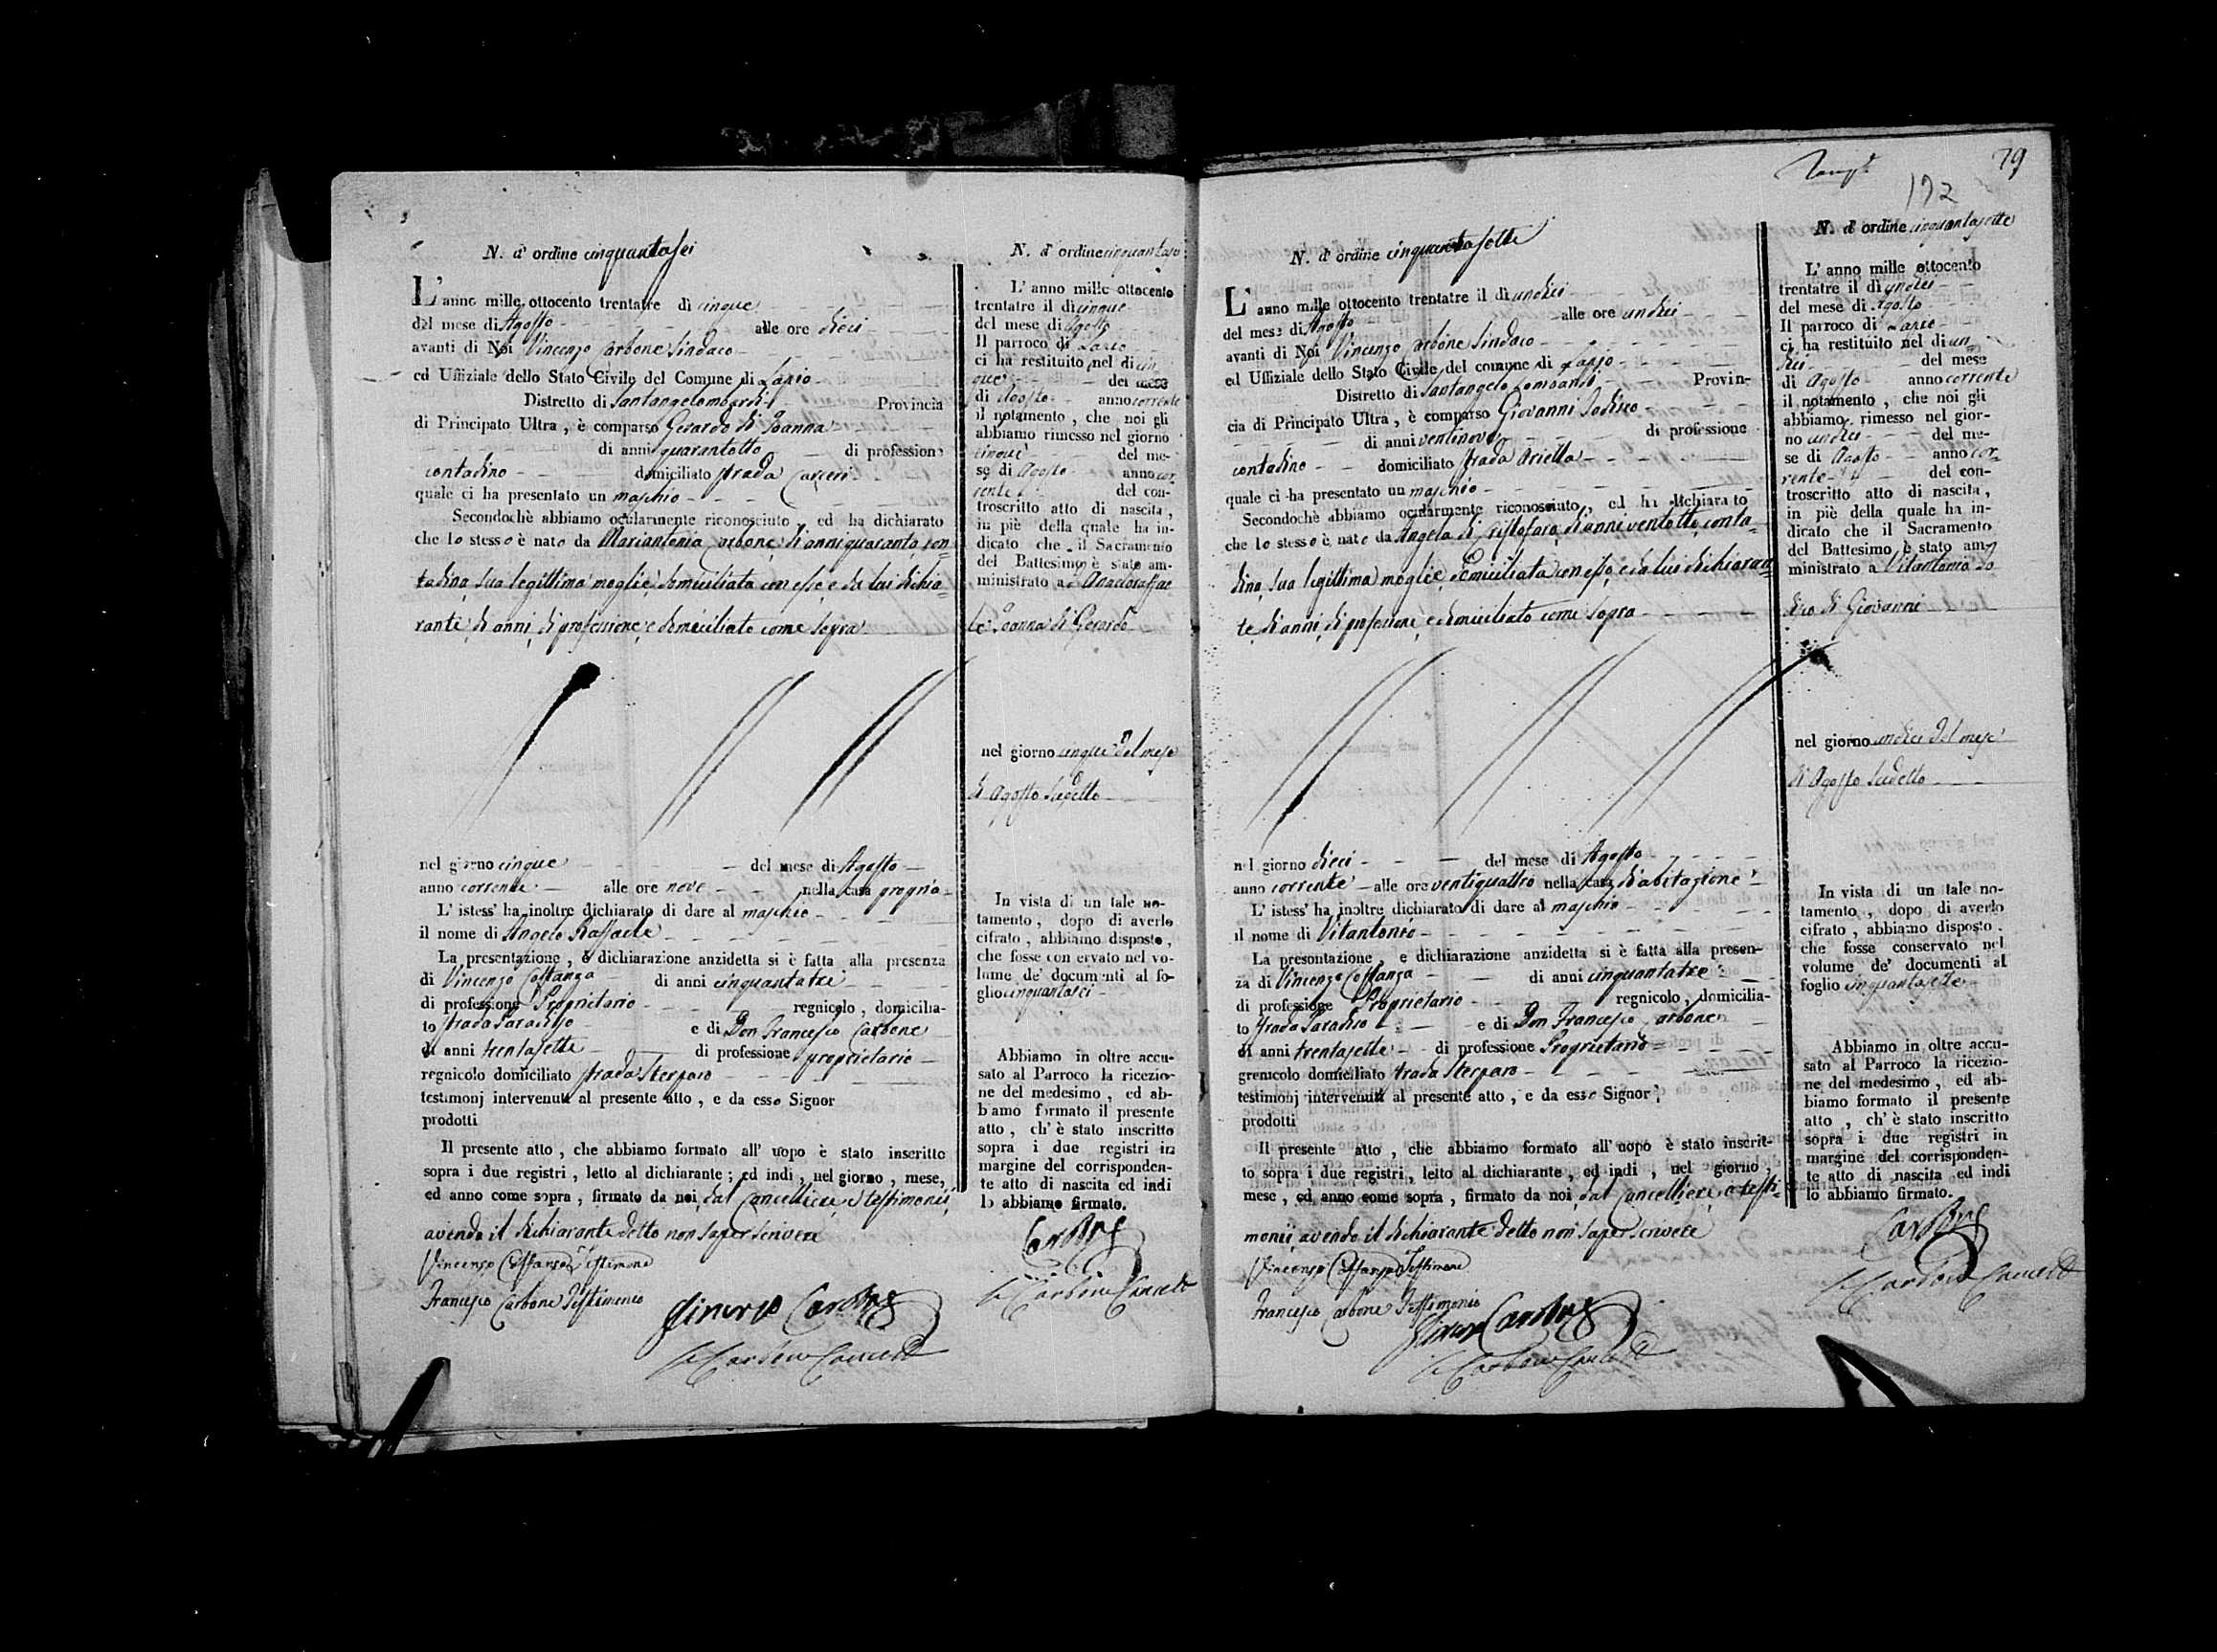 N. d' ordine cinquantasei
L' anno mille ottocento trentatre dì cinque
del mese di Agosto alle ore dieci
avanti di Noi Vincenzo Carbone Sindaco
ed Uffiziale dello Stato Civile del Comune di Lapio
Distretto di Santangelombardi Provincia
di Principato Ultra , è comparso Gerardo di Joanna
di anni quarantotto di professione
contadino domiciliato strada Carceri
quale ci ha presentato un maschio
Secondochè abbiamo ocularmente riconosciuto , ed ha dichiarato
che lo stesso è nato da Mariantonia Carbone, di anni quaranta con-
tadina, sua legittima moglie, domiciliata con esso, e da lui dichia-
rante, di anni, di professione, e domiciliato come sopra
nel giorno cinque del mese di Agosto
anno corrente alle ore nove nella casa propria
L' istess' ha inoltre dichiarato di dare al maschio
il nome di Angelo Raffaele
La presentazione , e dichiarazione anzidetta si è fatta alla presenza
di Vincenzo Costanza di anni cinquantatre
di professione Proprietario regnicolo , domicilia-
to strada Paradiso e di Don Francesco Carbone
di anni trentasette di professione proprietario
regnicolo domiciliato strada Sterparo
testimonj intervenuti al presente atto , e da esso Signor
prodotti
Il presente atto , che abbiamo formato all' uopo è stato inscritto
sopra i due registri , letto al dichiarante ; ed indi , nel giorno , mese,
ed anno come sopra , firmato da noi, dal Cancelliere, e testimonii,
avendo il dichiarante detto non saper scrivere
Vincenzo Costanza Testimone
Francesco Carbone Testimonio
Vincenzo Carbone
Carbone Cancell
N. d' ordine cinquantasei
L' anno mille ottocento
trentatre il dì cinque
del mese di Agosto
Il parroco di Lapio
ci ha restituito nel dì cin-
que del mese
di Agosto anno corrente
il notamento , che noi gli
abbiamo rimesso nel giorno
cinque del me-
se di Agosto anno cor-
rente del con-
troscritto atto di nascita ,
in piè della quale ha in-
dicato che il Sacramento
del Battesimo è stato am-
ministrato a
Joanna di Gerardo
nel giorno cinque del mese
di Agosto sudetto
In vista di un tale no-
tamento , dopo di averlo
cifrato , abbiamo disposto ,
che fosse con ervato nel vo-
lume de' documenti al fo-
glio cinquantasei
Abbiamo in oltre accu-
sato al Parroco la ricezio-
ne del medesimo , ed ab-
biamo formato il presente
atto , ch' è stato inscritto
sopra i due registri in
margine del corrisponden-
te atto di nascita ed indi
lo abbiamo firmato.
Carbone
Carbone Cancell
79
172
N. d' ordine cinquantasette
L' anno mille ottocento trentatre il dì undici
del mese di Agosto alle ore undici
avanti di Noi Vincenzo Carbone Sindaco
ed Uffiziale dello Stato Civile del comune di Lapio
Distretto di Santangelo Lombardi Provin-
cia di Principato Ultra , è comparso Giovanni Jodico
di anni ventinove di professione
contadino domiciliato strada Ariella
quale ci ha presentato un maschio
Secondochè abbiamo ocularmente riconosciuto , ed ha dichiarato
che lo stesso è nato da Angela di Cristofaro, di anni ventotto, conta-
dina, sua legittima moglie, domiciliata con esso, e da lui dichiaran-
te, di anni, di professione, e domiciliato come sopra
nel giorno dieci del mese di Agosto
anno corrente alle ore ventiquattro nella casa d'abitazione
L' istess' ha inoltre dichiarato di dare al maschio
il nome di Vitantonio
La presentazione , e dichiarazione anzidetta si è fatta alla presen-
za di Vincenzo Costanza di anni cinquantatre
di professione Proprietario regnicolo , domicilia-
to strada Paradiso e di Don Francesco Carbone
di anni trentasette di professione Proprietario
grenicolo domiciliato strada Sterparo
testimonj intervenuti al presente atto , e da esso Signor
prodotti
Il presente atto , che abbiamo formato all' uopo è stato inscrit-
to sopra i due registri , letto al dichiarante , ed indi , nel giorno ,
mese , ed anno come sopra , firmato da noi, dal Cancelliere, e testi-
monii, avendo il dichiarante detto non saper scrivere
Vincenzo Costanza Testimone
Francesco Carbone Testimonio
Vincenzo Carbone
Carbone Cancell
N. d' ordine cinquantasette
L' anno mille ottocento
trentatre il dì undici
del mese di Agosto
Il parroco di Lapio
ci ha restituito nel dì un-
dici del mese
di Agosto anno corrente
il notamento , che noi gli
abbiamo rimesso nel gior-
no undici del me-
se di Agosto anno cor-
rente del con-
troscritto atto di nascita ,
in piè della quale ha in-
dicato che il Sacramento
del Battesimo è stato am-
ministrato a Vitantonio Jo-
dico di Giovanni
nel giorno undici del mese
di Agosto sudetto
In vista di un tale no-
tamento , dopo di averlo
cifrato , abbiamo disposto .
che fosse conservato nel
volume de' documenti al
foglio cinquantasette
Abbiamo in oltre accu-
sato al Parroco la ricezio-
ne del medesimo , ed ab-
biamo formato il presente
atto , ch' è stato inscritto
sopra i due registri in
margine del corrisponden-
te atto di nascita ed indi
lo abbiamo firmato.
Carbone
Carbone Cancell